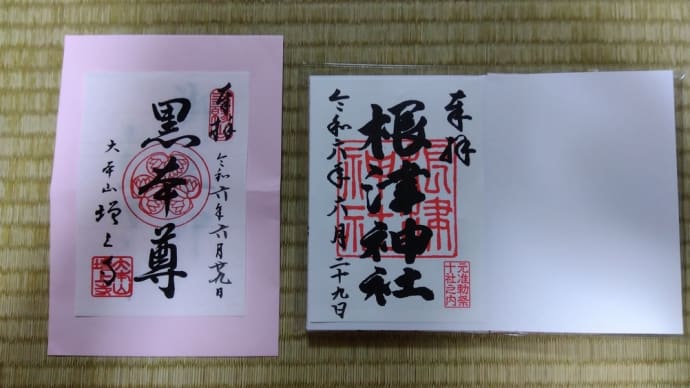 奉拝
令和六年六月廿九日
黒本尊
大本山 増上寺
奉拝
根津神社
根津神社
元准勅祭
十社之内
令和六年六月二十九日